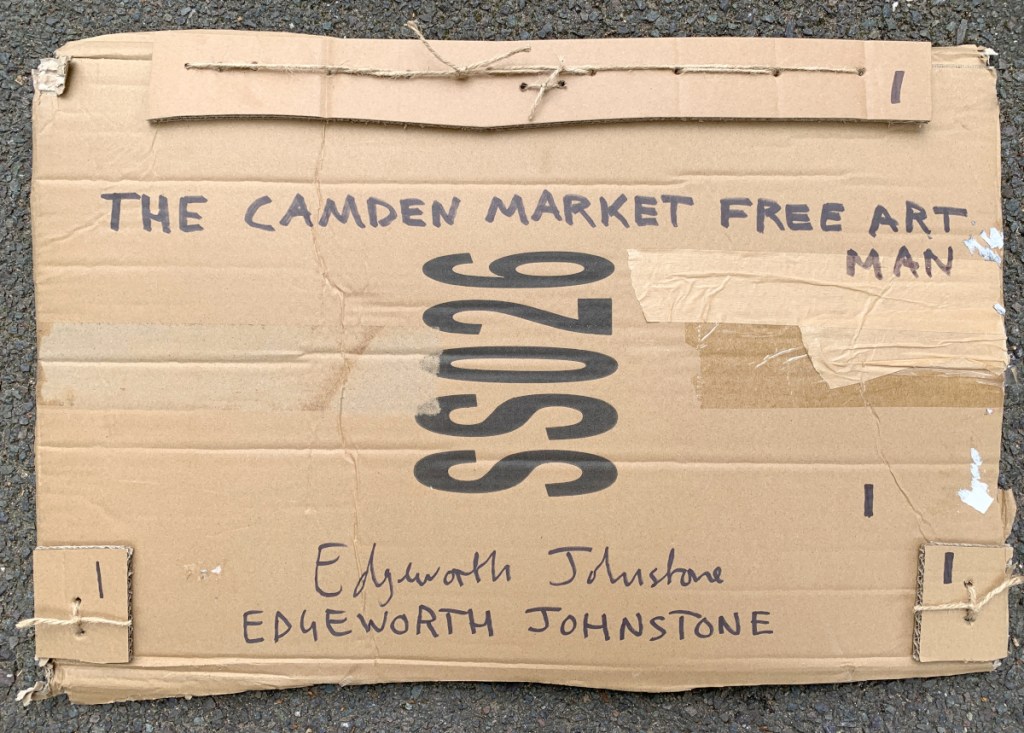 1
THE CAMDEN MARKET FREE ART
MAN
SS026
1
1
1
Edgeworth Johnstone
EDGEWORTH JOHNSTONE